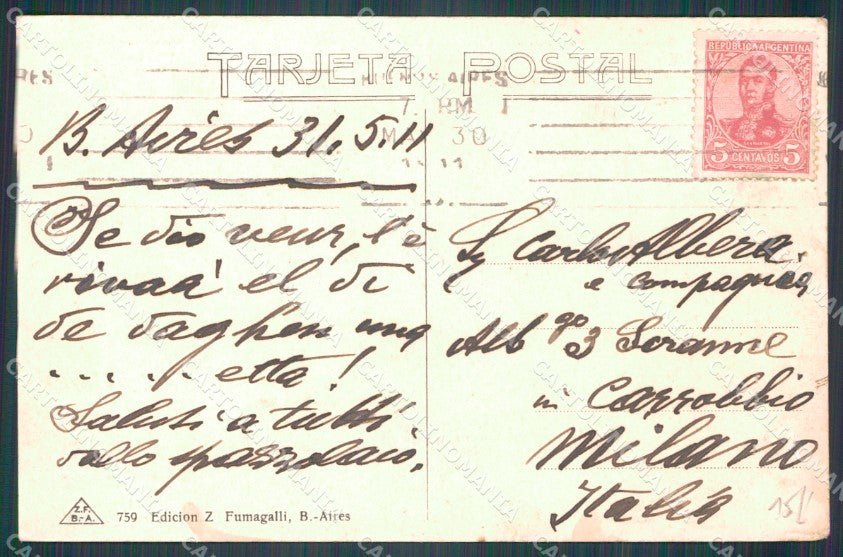 TARJETA POSTAL
BUENOS AIRES
7 PM
MAY 30
REPUBLICA ARGENTINA
5 CENTAVOS 5
B. Aires 31.5.11
Se dio veur, l'è
rivaa' el di
de daghen una
...... etta!
Saluti a tutti
dallo spazzolaio.
Sig Carlo Albera
e compagnia
Alb go 3 Scranne
in Carrobbio
Milano
Italia
15/
Z.F.
B.-A.
759 Edicion Z Fumagalli, B.-Aires
CARTOLINOMANIA